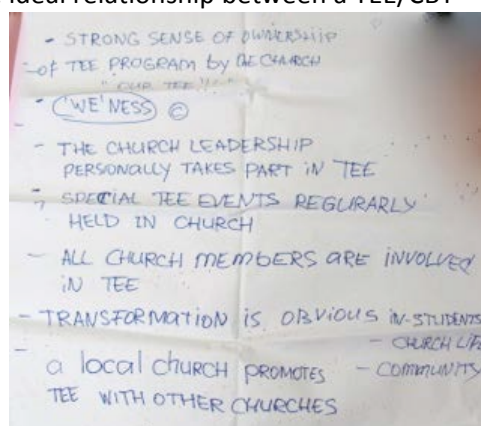 ideal relationship between a TEE/CBT
- STRONG SENSE OF OWNERSHIP
- of TEE PROGRAM by the CHURCH
"OUR TEE!!"
- 'WE'NESS ©
- THE CHURCH LEADERSHIP
PERSONALLY TAKES PART IN TEE
- SPECIAL TEE EVENTS REGURARLY
HELD IN CHURCH
- ALL CHURCH MEMBERS ARE INVOLVED
IN TEE
- TRANSFORMATION IS OBVIOUS IN-STUDENTS
- CHURCH LIFE
- a local church PROMOTES - COMMUNITY
TEE WITH OTHER CHURCHES